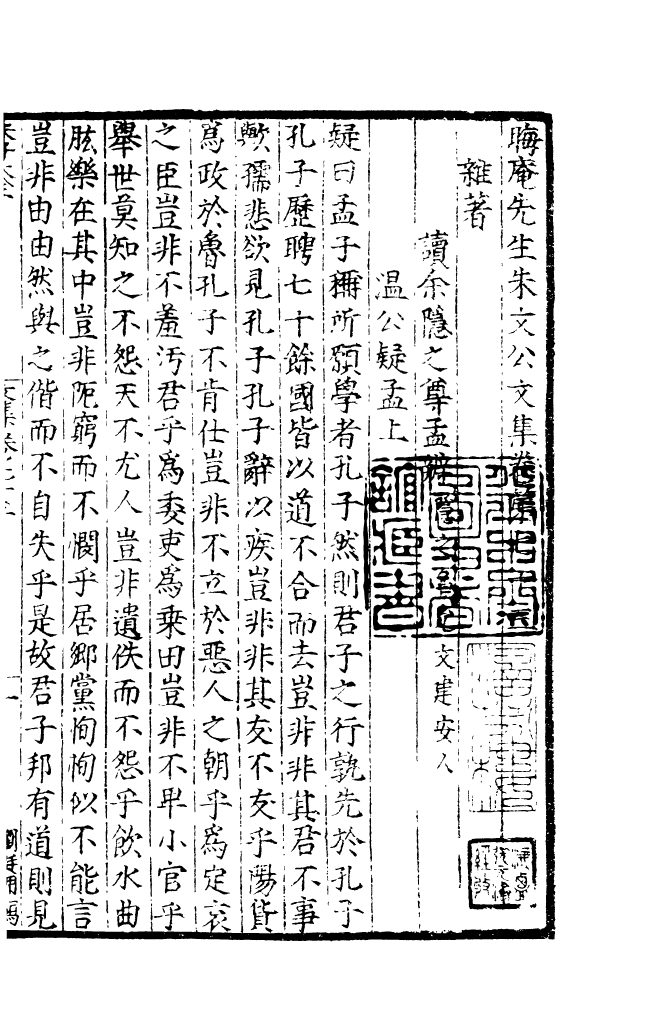 晦庵先生朱文公文集卷第七十三
雜著
讀余隱之尊孟辨 隱之 文建安人
溫公疑孟上
疑曰孟子稱所願學者孔子然則君子之行孰先於孔子
孔子歷聘七十餘國皆以道不合而去豈非非其君不事
歟孺悲欲見孔子孔子辭以疾豈非非其友不友乎陽貨
爲政於魯孔子不肯仕豈非不立於惡人之朝乎爲定哀
之臣豈非不羞汚君乎爲委吏爲乘田豈非不卑小官乎
舉世莫知之不怨天不尤人豈非遺佚而不怨乎飲水曲
肱樂在其中豈非阨窮而不憫乎居鄉黨恂恂似不能言
豈非由由然與之偕而不自失乎是故君子邦有道則見
文集卷七十三
一